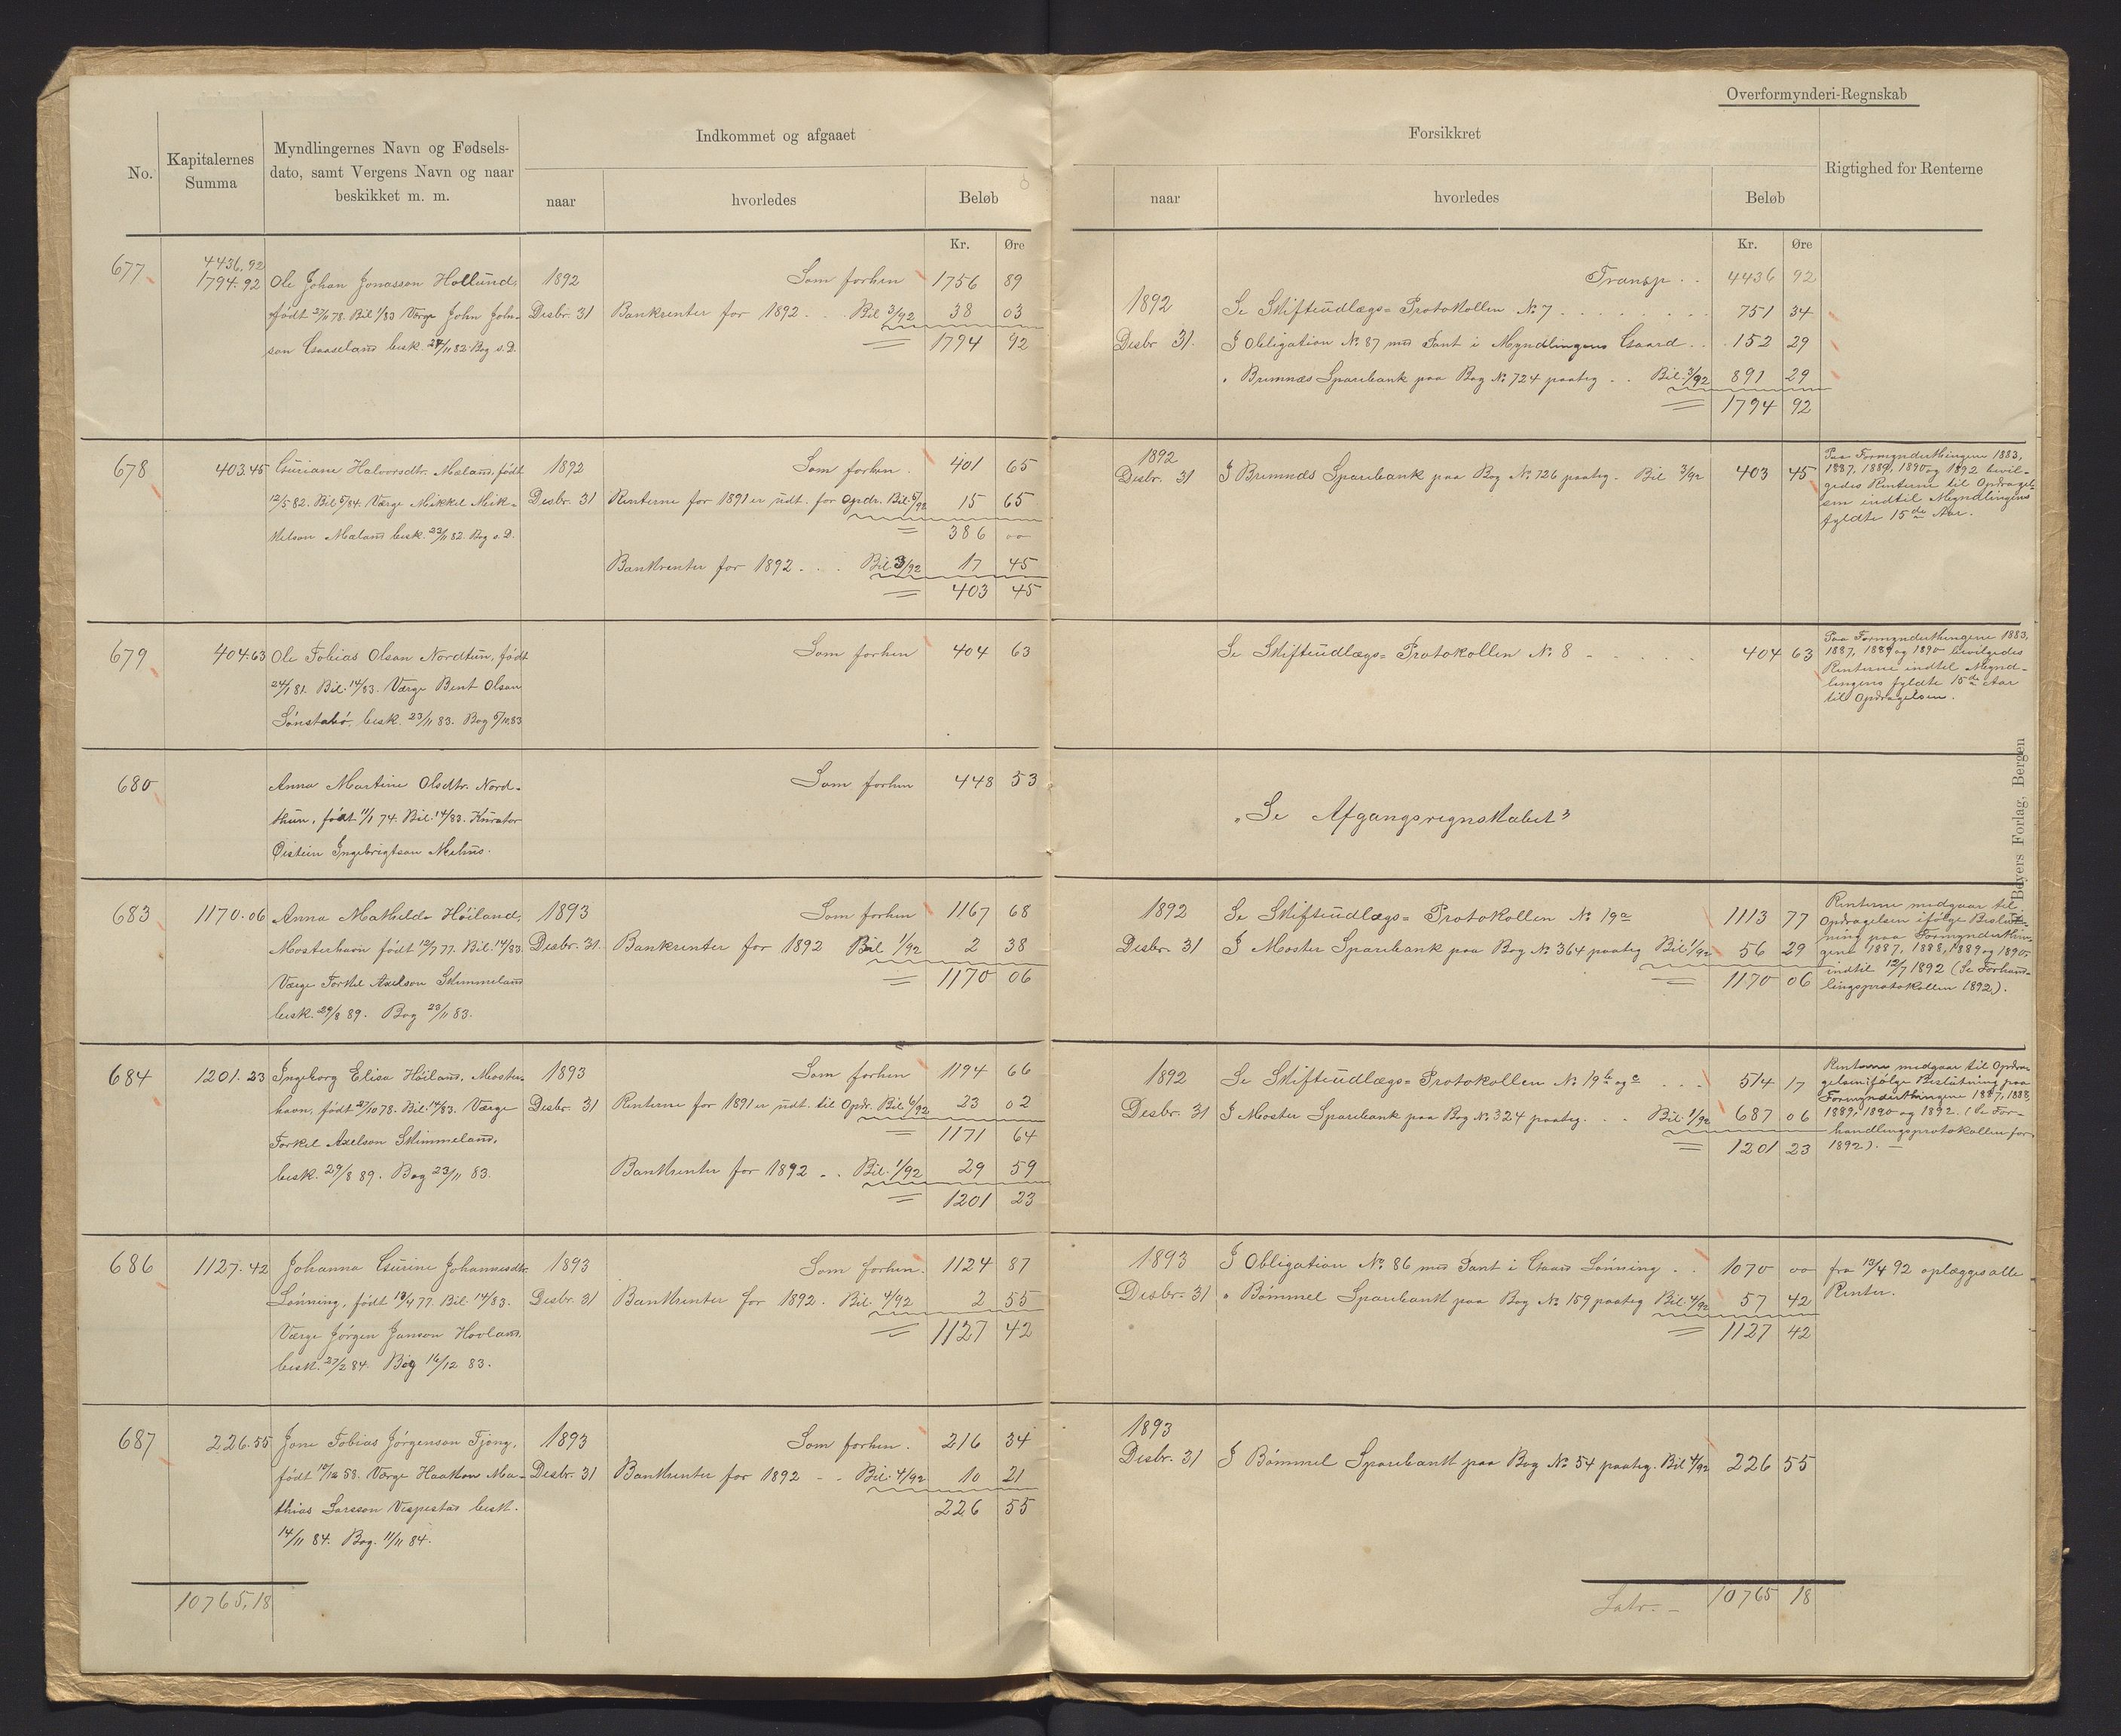 Overformynderi-Regnskab
No.
Kapitalernes Summa
Myndlingernes Navn og Fødsels-
dato, samt Vergens Navn og naar
beskikket m. m.
Indkommet og afgaaet
naar
hvorledes
Beløb
Kr. Øre
Forsikkret
naar
hvorledes
Beløb
Kr. Øre
Rigtighed for Renterne
4436.92
677 1794.92 Ole Johan Jonasson Hollund, 1892 Som forhen 1756 89
født 78. Bil 1/83 Værge John John- Desbr. 31 Bankrenter for 1892 . . Bil 3/92 38 03
son Gaaseland besk. 24/11 82. Bog s. D. 1794 92
Transp . . 4436 92
1892 Se Skifteudlægs=Protokollen No 7 . . . . . 751 34
Desbr 31. I Obligation No 87 med Pant i Myndlingens Gaard . . 152 29
" Bremnæs Sparebank paa Bog No 724 paateg . . Bil. 3/92 891 29
1794 92
678 403.45 Guriane Halvorsdtr. Mæland, født 1892 Som forhen . 401 65
12/5 82. Bil 5/84. Værge Mikkel Mik- Desbr. 31 Renterne for 1891 er udt. for Opdr. Bil. 6/92 15 65
kelson Mæland besk. 23/11 82. Bog s. D. 386 00
Bankrenter for 1892 . . . Bil. 3/92 17 45
403 45
1892
Desbr. 31 I Bremnæs Sparebank paa Bog No 726 paateg. Bil 3/92 403 45
Paa Formynderthingene 1883,
1887, 1889, 1890 og 1892 bevil-
gedes Renterne til Opdragel-
sen indtil Myndlingens
fyldte 15de Aar.
679 404.63 Ole Tobias Olsen Nordtun, født Som forhen 404 63
24/1 81. Bil. 14/83. Værge Bent Olson
Sönstabö, besk. 23/11 83. Bog 5/10 83
Se Skifteudlægs=Protokollen No 8 - . . . . 404 63
Paa Formynderthingene 1883,
1887, 1889 og 1890 bevilgedes
Renterne indtil Mynd-
lingens fyldte 15de Aar
til Opdragelsen.
680 Anna Martine Olsdtr. Nord- Som forhen 448 53
thun, født 11/1 74. Bil. 14/83. Kurator
Øistein Ingebrigtson Mehus.
"Se Afgangsregnskabet"
683 1170.06 Anna Mathilde Höiland, 1893 Som forhen 1167 68
Mosterhavn født 12/7 77. Bil. 14/83. Desbr. 31. Bankrenter for 1892 Bil 1/92 2 38
Værge Torkel Axelson Skimmeland 1170 06
besk. 29/8 89. Bog 23/11 83.
1892 Se Skifteudlægs=Protokollen No 19a 1113 77
Desbr. 31 I Moster Sparebank paa Bog No 364 paateg Bil. 1/92 56 29
1170 06
Renterne medgaar til
Opdragelsen ifölge Beslut-
ning paa Formynderthin-
gene 1887, 1888, 1889 og 1890
indtil 12/7 1892 (Se Forhand-
lingsprotokollen 1892).
684 1201.23 Ingeborg Elisa Höiland, Moster- 1893 Som forhen 1194 66
havn, født 27/10 78. Bil. 14/83. Værge Desbr. 31 Renterne for 1891 er udt. til Opdr. Bil. 6/92 23 02
Torkel Axelson Skimmeland, 1171 64
besk. 29/8 89. Bog 23/11 83. Bankrenter for 1892 . . Bil. 1/92 29 59
1201 23
1892 Se Skifteudlægs=Protokollen No 19b og c . . . 514 17
Desbr. 31 I Moster Sparebank paa Bog No 324 paateg. . . Bil. 1/92 687 06
1201 23
Renterne medgaar til Opdra-
gelsen ifölge Beslutning paa
Formynderthingene 1887, 1888,
1889, 1890 og 1892. (Se For-
handlingsprotokollen for
1892). —
686 1127.42 Johanna Gurine Johannesdtr. 1893 Som forhen . 1124 87
Lönning, født 13/4 77. Bil. 14/83. Desbr. 31 Bankrenter for 1892. Bil. 4/92 2 55
Værge Jørgen Janson Hovland, 1127 42
besk. 27/2 84. Bog 16/12 83.
1893 I Obligation No 86 med Pant i Gaard Lönning . . 1070 00
Desbr. 31 " Bömmel Sparebank paa Bog No 159 paateg Bil. 4/92 57 42
1127 42
fra 13/4 92 oplægges alle
Renter.
687 226.55 Jone Tobias Jørgenson Tjong, 1893 Som forhen . 216 34
født 10/12 58. Værge Haakon Ma- Desbr. 31 Bankrenter for 1892 - - Bil. 4/92 10 21
thias Larsson Vespestad besk. 226 55
14/11 84. Bog. 11/11 84.
1893
Desbr. 31 I Bömmel Sparebank paa Bog No 54 paateg. Bil 4/92 226 55
10765.18
Latr. - 10765 18
Beyers Forlag, Bergen